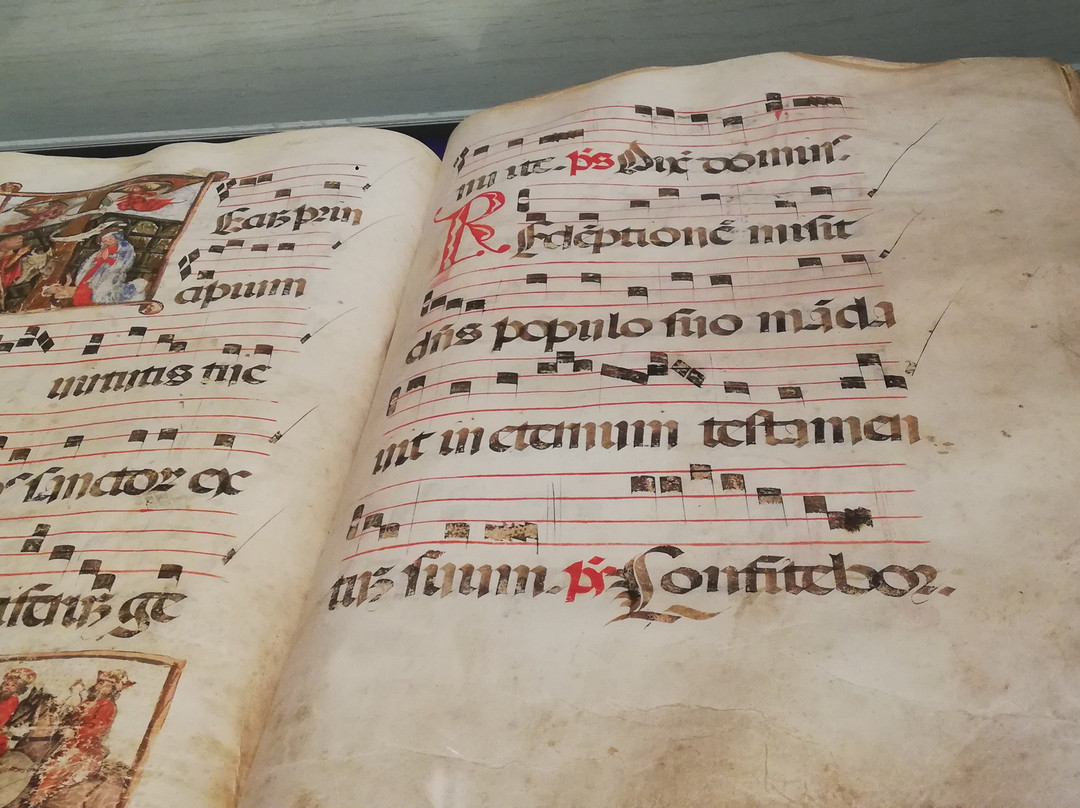 Ecuʒ prin
cipium
uirtutis tue
sanctor ex
ge
nui te. p̄s Dix̄ domin⁹.
Redēptionē misit
dn̄s populo suo māda
uit in eternum testamen
tuʒ suum. p̄s Confitebor.